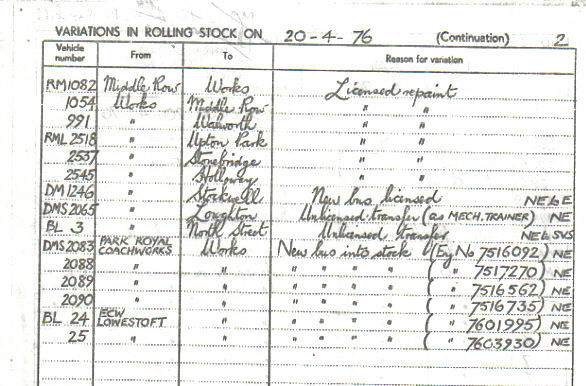 VARIATIONS IN ROLLING STOCK ON 20-4-76 (Continuation) 2
Vehicle number From To Reason for variation
RM1082 Middle Row Works Licensed repaint
1054 Works Middle Row " "
991 " Walworth " "
RML 2518 " Upton Park " "
2557 " Stonebridge " "
2545 " Holloway " "
DM 1246 " Stockwell New bus licensed NE & E
DMS 2065 " Loughton Unlicensed transfer (as MECH. TRAINER) NE
BL 3 " North Street Unlicensed transfer NE & SXS
DMS 2083 PARK ROYAL COACHWORKS Works New bus into stock (Eng No 7516092) NE
2088 " " " " " " ( " 7517270) NE
2089 " " " " " " ( " 7516562) NE
2090 " " " " " " ( " 7516735) NE
BL 24 ECW LOWESTOFT " " " " " ( " 7601995) NE
25 " " " " " " ( " 7603930) NE